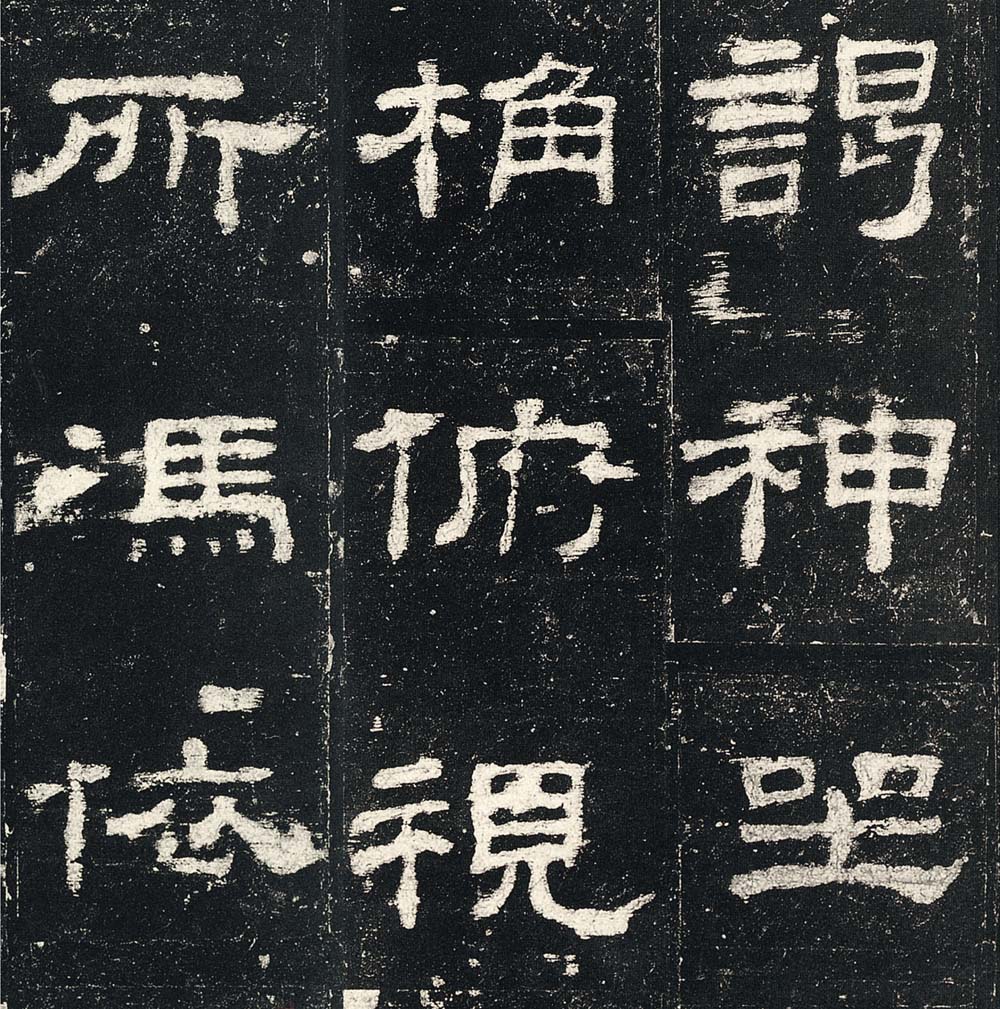 謁神坐
桷俯視
所馮依